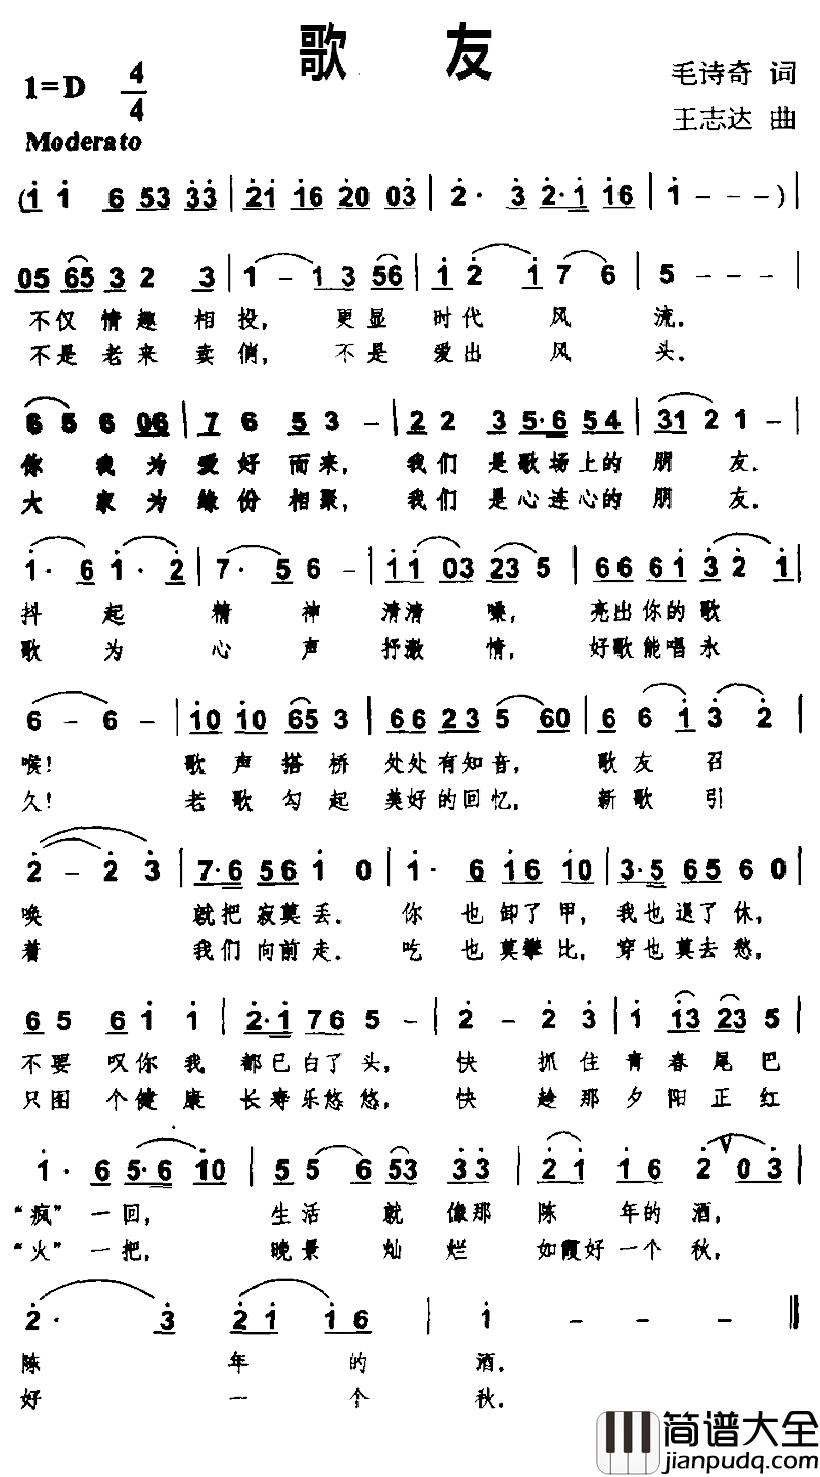 歌 友
1=D 4/4
毛诗奇 词
王志达 曲
Moderato
(1 1 6 53 33 | 21 16 20 03 | 2· 3 2·1 16 | 1 - - - ) |
05 65 3 2 3 | 1 - 1 3 56 | 1 2 1 7 6 | 5 - - -
不仅情趣相投, 更显时代风流.
不是老来卖俏, 不是爱出风头.
6 5 6 06 | 7 6 5 3 - | 2 2 3 5·6 54 | 31 2 1 -
你我为爱好而来, 我们是歌场上的朋友.
大家为缘份相聚, 我们是心连心的朋友.
1· 6 1· 2 | 7· 5 6 - | 11 03 23 5 | 66 61 3 2 1 |
抖起精神清清嗓, 亮出你的歌
歌为心声抒激情, 好歌能唱永
6 - 6 - | 10 10 65 3 | 66 23 5 60 | 6 6 1 3 2 |
喉! 歌声搭桥处处有知音, 歌友召
久! 老歌勾起美好的回忆, 新歌引
2 - 2 3 | 7·6 56 1 0 | 1· 6 16 10 | 3·5 65 60 |
唤 就把寂莫丢. 你也卸了甲, 我也退了休,
着 我们向前走. 吃也莫攀比, 穿也莫去愁,
6 5 6 1 1 | 2·1 76 5 - | 2 - 2 3 | 1 13 23 5 |
不要叹你我都已白了头, 快抓住青春尾巴
只图个健康长寿乐悠悠, 快趁那夕阳正红
1· 6 5·6 10 | 5 5 6 53 33 | 21 16 2 V 2 03 |
“疯”一回, 生活就像那陈年的酒,
“火”一把, 晚景灿烂如霞好一个秋,
2· 3 21 16 | 1 - - - ‖
陈年的酒.
好一个秋.
简谱大全
jianpudq.com